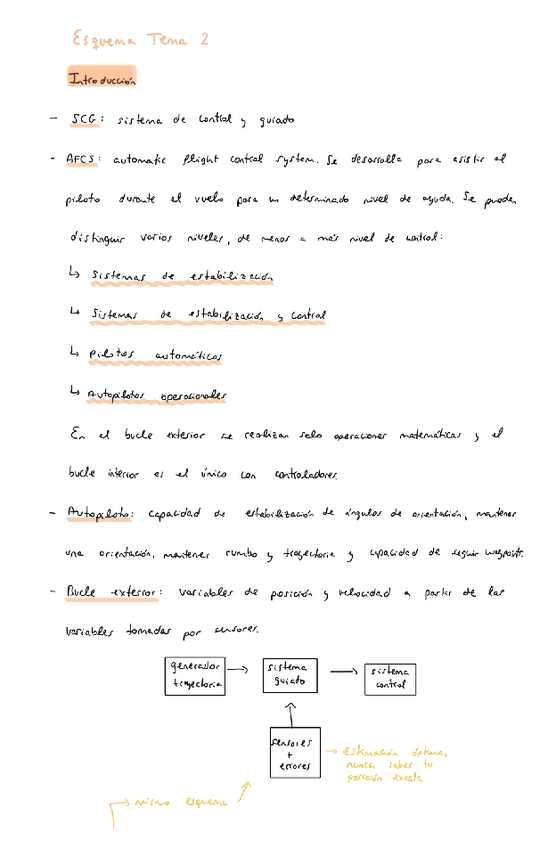 Esquema Tema 2
Introducción
- SCG: sistema de control y guiado
- AFCS: automatic flight control system. Se desarrolla para asistir al
piloto durante el vuelo para un determinado nivel de ayuda. Se pueden
distinguir varios niveles, de menos a más nivel de control:
↳ Sistemas de estabilización
↳ Sistemas de estabilización y control
↳ Pilotos automáticos
↳ Autopilotos operacionales
En el bucle exterior se realizan solo operaciones matemáticas y el
bucle interior es el único con controladores.
- Autopiloto: capacidad de estabilización de ángulos de orientación, mantener
una orientación, mantener rumbo y trayectoria y capacidad de seguir waypoints.
- Bucle exterior: variables de posición y velocidad a partir de las
variables tomadas por sensores.
generador
trayectoria
→
sistema
guiado
→
sistema
control
sensores
+
errores
→ estimación óptima,
nunca sabes tu
posición exacta
→ mismo esquema